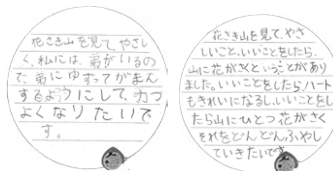 花さき山を見て、やさし
く、私には、弟がいるの
で、弟にゆずってがまん
するようにして、力づ
よくなりたいで
す。
花さき山を見て、やさ
しいこと、いいことをしたら、
山に花がさくということがあり
ました。いいことをしたらハート
もきれいになるし、いいことをし
たら山にひとつ花がさく
それをどんどんふやし
ていきたいです。